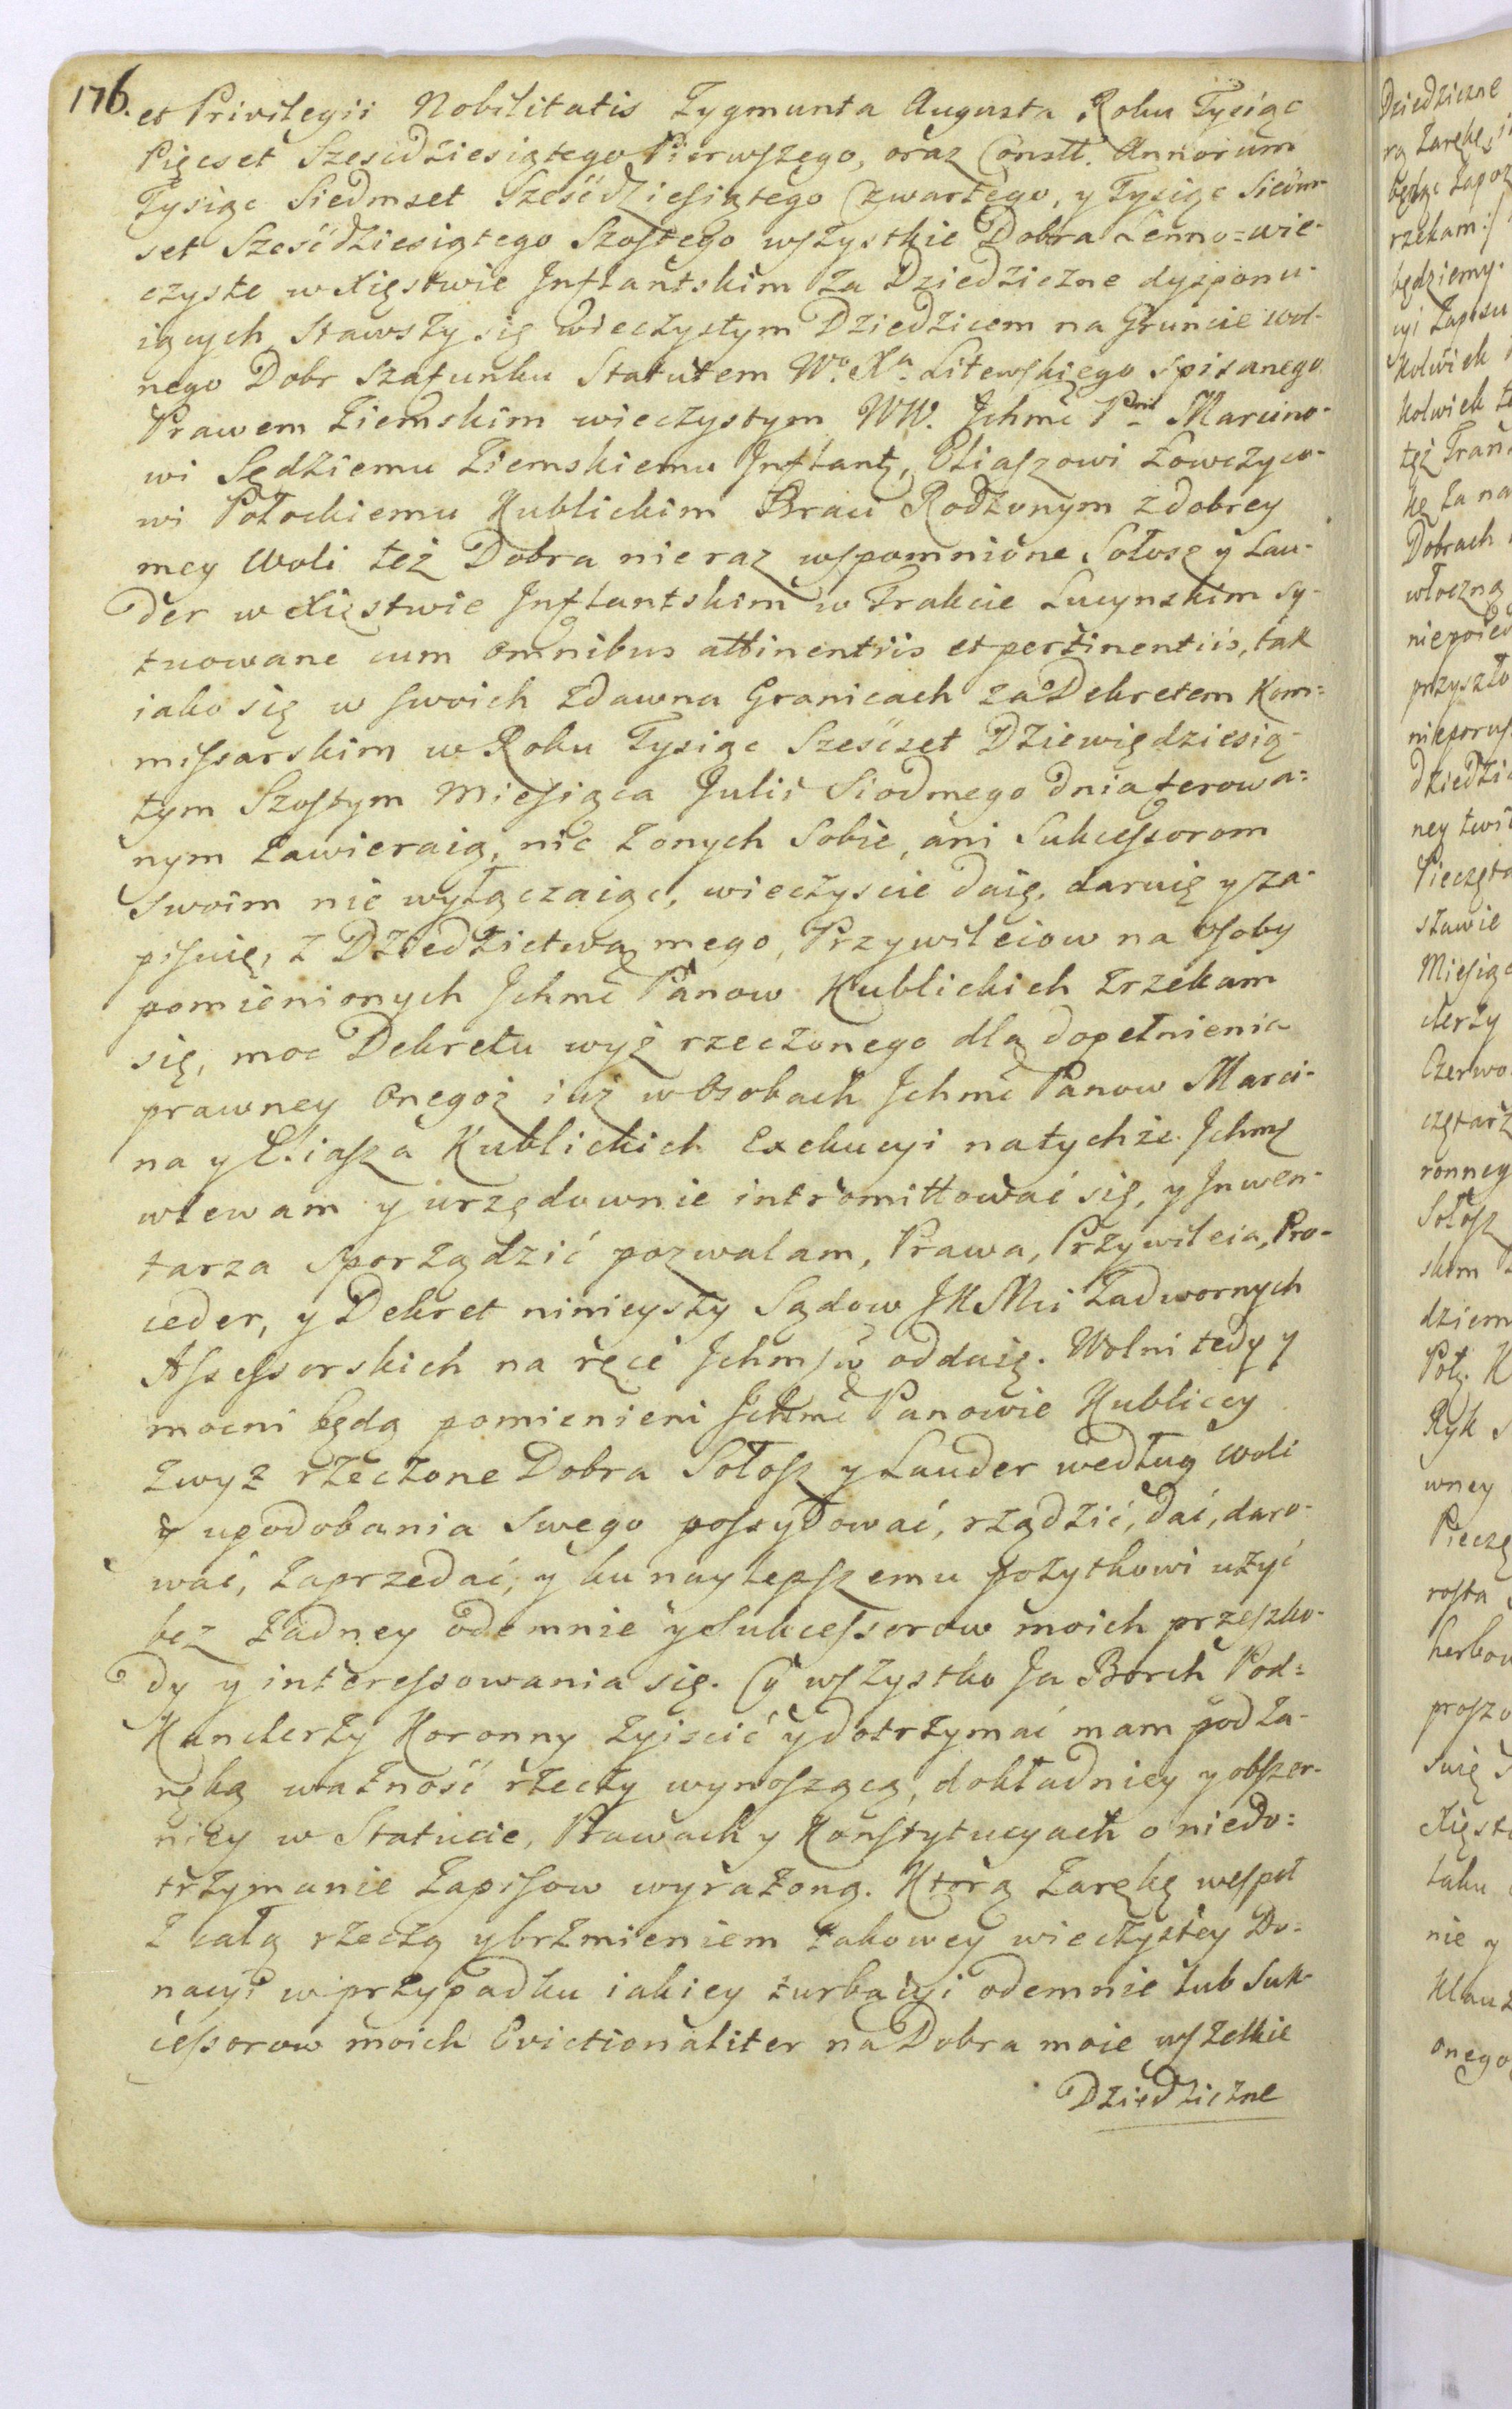 176.
et Privilegii Nobilitatis Zygmunta Augusta Roku Tysiąc
Pięcset Szescdziesiątego Pierwszego, oraz Constt. Annorum
Tysiąc Siedmset Sześćdziesiątego Czwartego, y Tysiąc Siedm-
set Sześćdziesiątego Szostego wszystkie Dobra Lenno=wie-
czyste w Xięstwie Inflantskim za Dziedziczne dysponu-
iących, Stawszy się wieczystym Dziedzicem na Gruncie wol-
nego Dobr Szafunku Statutem Wo. Xa. Litewskiego spisanego
Prawem Ziemskim wieczystym WW. Ichmć Pnm Marcino-
wi Sędziemu Ziemskiemu Inflant, Eliaszowi Łowczyco-
wi Połockiemu Kublickim Braci Rodzonym z dobrey
mey Woli też Dobra nie raz wspomnione Sołosz y Lau-
der w Xięstwie Inflantskim w Trakcie Lucynskim sy-
tuowane cum omnibus attinentiis et pertinentiis, tak
iako się w swoich zdawna Granicach za Dekretem Kom=
missarskim w Roku Tysiąc Sześćset Dziewiędziesią-
tym Szostym Miesiąca Julii Siodmego dnia ferowa=
nym zawieraią, nic z onych Sobie, ani Sukcessorom
Swoim nie wyłączaiąc, wieczyście daię, daruię y za-
pisuię, z Dziedzictwa mego, Przywileiow na osoby
pomienionych Ichmć Panow Kublickich zrzekam
się, moc Dekretu wyż rzeczonego dla dopełnienia
prawney onegoż iuż w Osobach Ichmć Panow Marci-
na y Eliasza Kublickich Exekucyi na tychże Ichmć
wlewam y urzędownie intromittować się, y Inwen-
tarza sporządzić pozwalam, Prawa, Przywileia, Pro-
ceder, y Dekret ninieyszy Sądow JKMci Zadwornych
Assessorskich na ręce Ichmsw oddaię. Wolni tedy y
mocni będą pomienieni Ichmć Panowie Kubliccy
zwyż rzeczone Dobra Sołosz y Lauder według woli
y upodobania swego possydować, rządzić, dać, daro-
wać, zaprzedać, y ku naylepszemu pożytkowi użyć
bez żadney odemnie y Sukcessorow moich przeszko-
dy y interessowania się. Co wszystko Ja Borch Pod=
Kanclerzy Koronny zyiscić y dotrzymać mam pod za-
ręką ważność rzeczy wynoszącą, dokładniey y obszer-
niey w Statucie, Prawach y Konstytucyach o niedo=
trzymanie zapisow wyrażoną. Którą zarękę wespoł
z całą rzeczą y brzmieniem takowey wieczystey Do=
nacyi w przypadku iakiey turbacyi odemnie lub Suk-
cessorow moich Evictionaliter na Dobra moie wszelkie
Dziedziczne
Dziedziczne
rzekam:/
będziemy.
Kolwiek
kolwiek
Dobrach
włoczną
przyszło
sławie
Czerwo
ronney
Sołosz
dziem
wney
herbow
nie y